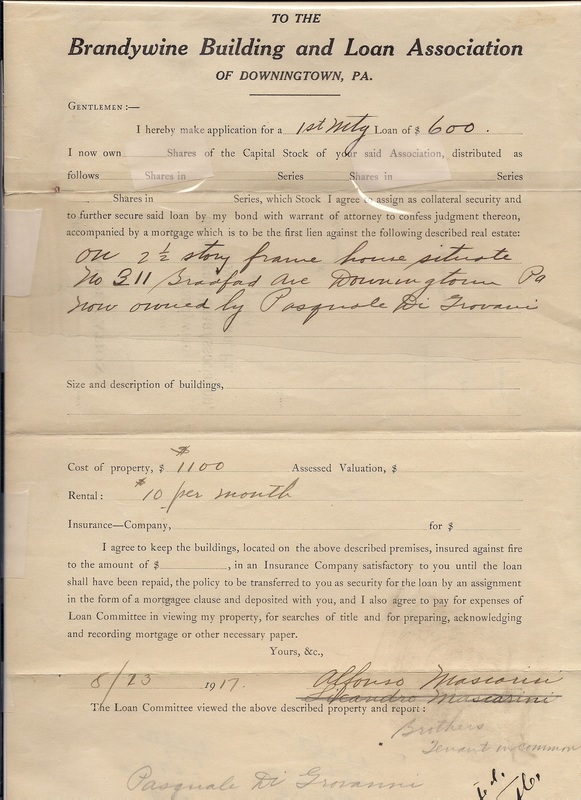 TO THE
Brandywine Building and Loan Association
OF DOWNINGTOWN, PA.
GENTLEMEN:—
I hereby make application for a 1st Mtg Loan of $ 600.
I now own Shares of the Capital Stock of your said Association, distributed as
follows Shares in Series Shares in Series
Shares in Series, which Stock I agree to assign as collateral security and
to further secure said loan by my bond with warrant of attorney to confess judgment thereon,
accompanied by a mortgage which is to be the first lien against the following described real estate:
on 2½ story frame house situate
No 311 Bradfad Ave Downingtown Pa
now owned by Pasquale Di Grovani
Size and description of buildings,
Cost of property, $ $1100 Assessed Valuation, $
Rental: $10 per month
Insurance—Company, for $
I agree to keep the buildings, located on the above described premises, insured against fire
to the amount of $ , in an Insurance Company satisfactory to you until the loan
shall have been repaid, the policy to be transferred to you as security for the loan by an assignment
in the form of a mortgagee clause and deposited with you, and I also agree to pay for expenses of
Loan Committee in viewing my property, for searches of title and for preparing, acknowledging
and recording mortgage or other necessary paper.
Yours, &c.,
8/23 1917. Alfonso Mascarini
Licandro Mascarini
The Loan Committee viewed the above described property and report:
Brothers
Tenant in common
Pasquale Di Grovanni